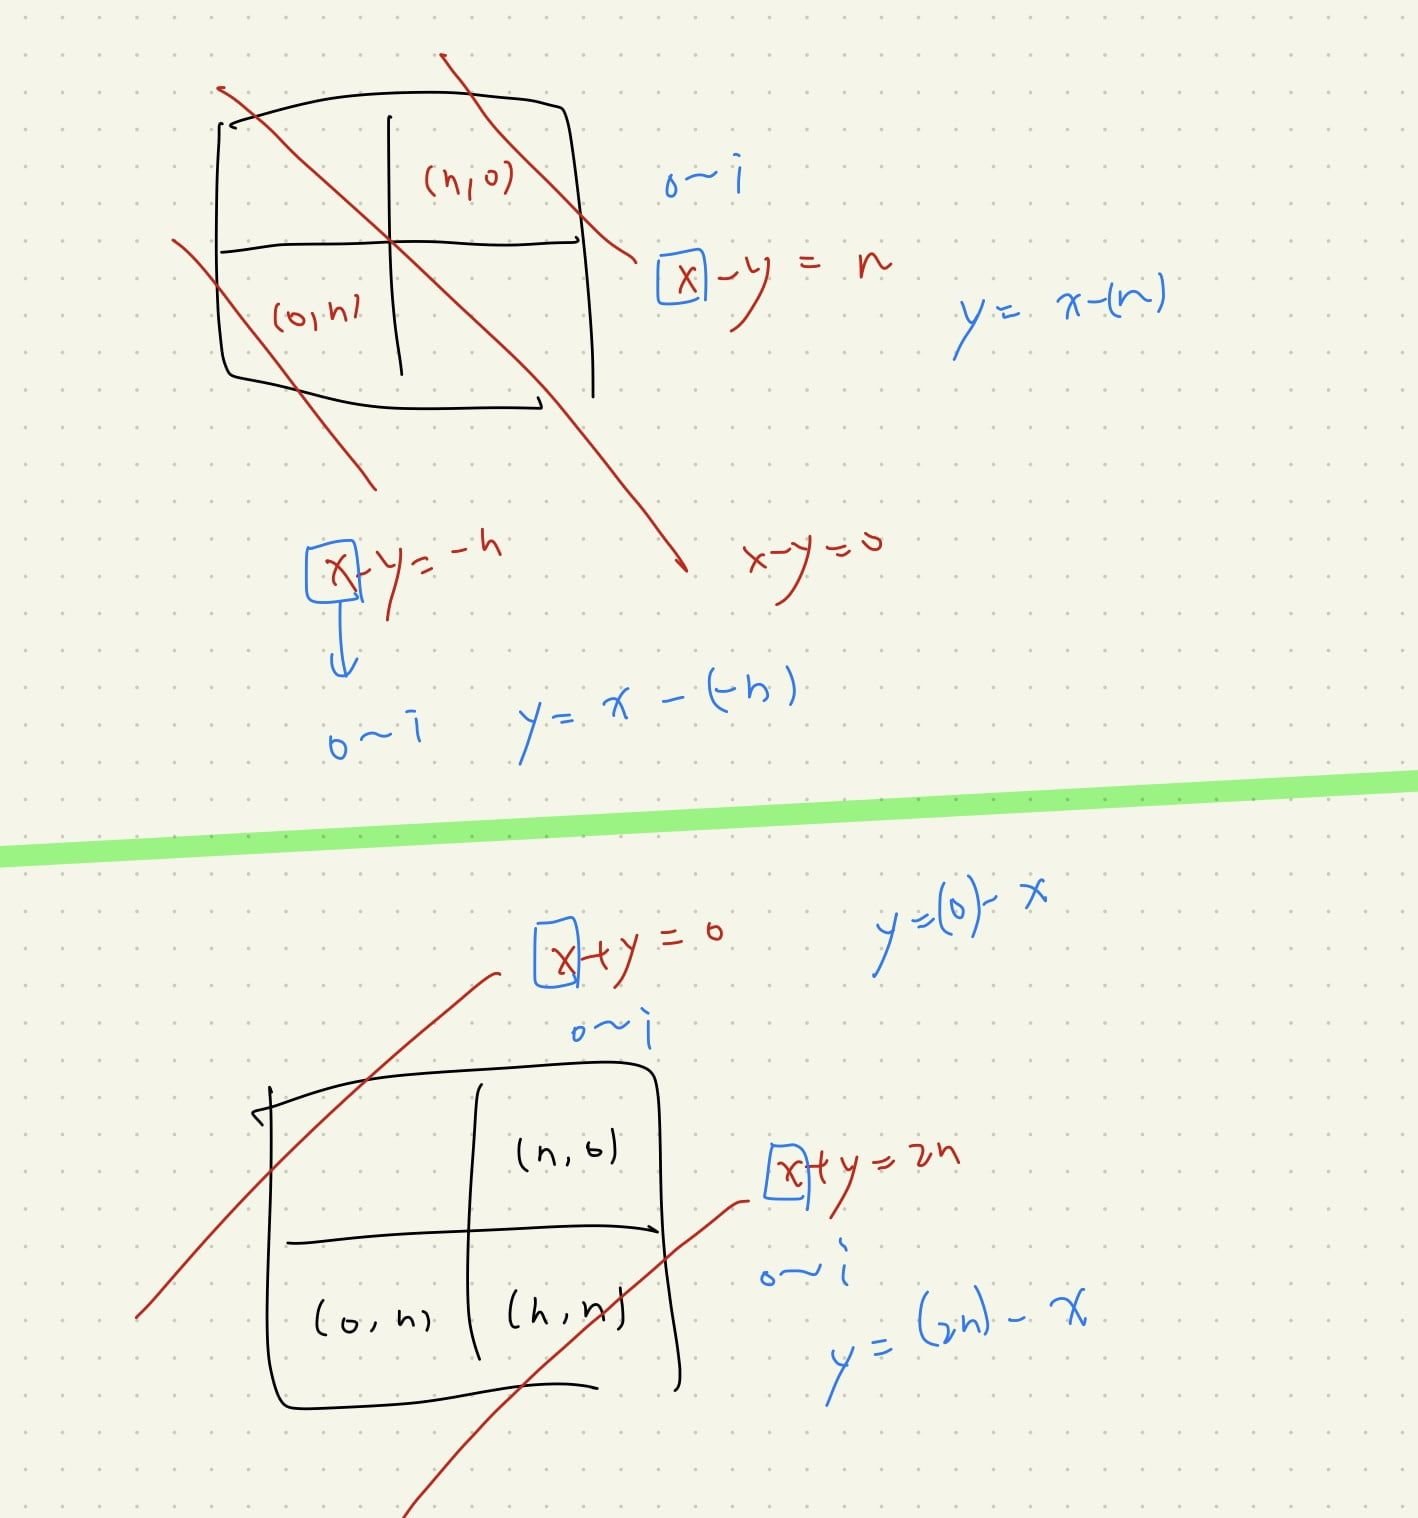 (n,0)
0~i
x-y = n
y = x-(n)
(0,n)
x-y=-n
x-y=0
0~i
y = x - (-n)
y=(0)-x
x+y=0
0~i
(n,0)
x+y=2n
0~i
(0,n)
(n,n)
y = (2n)-x